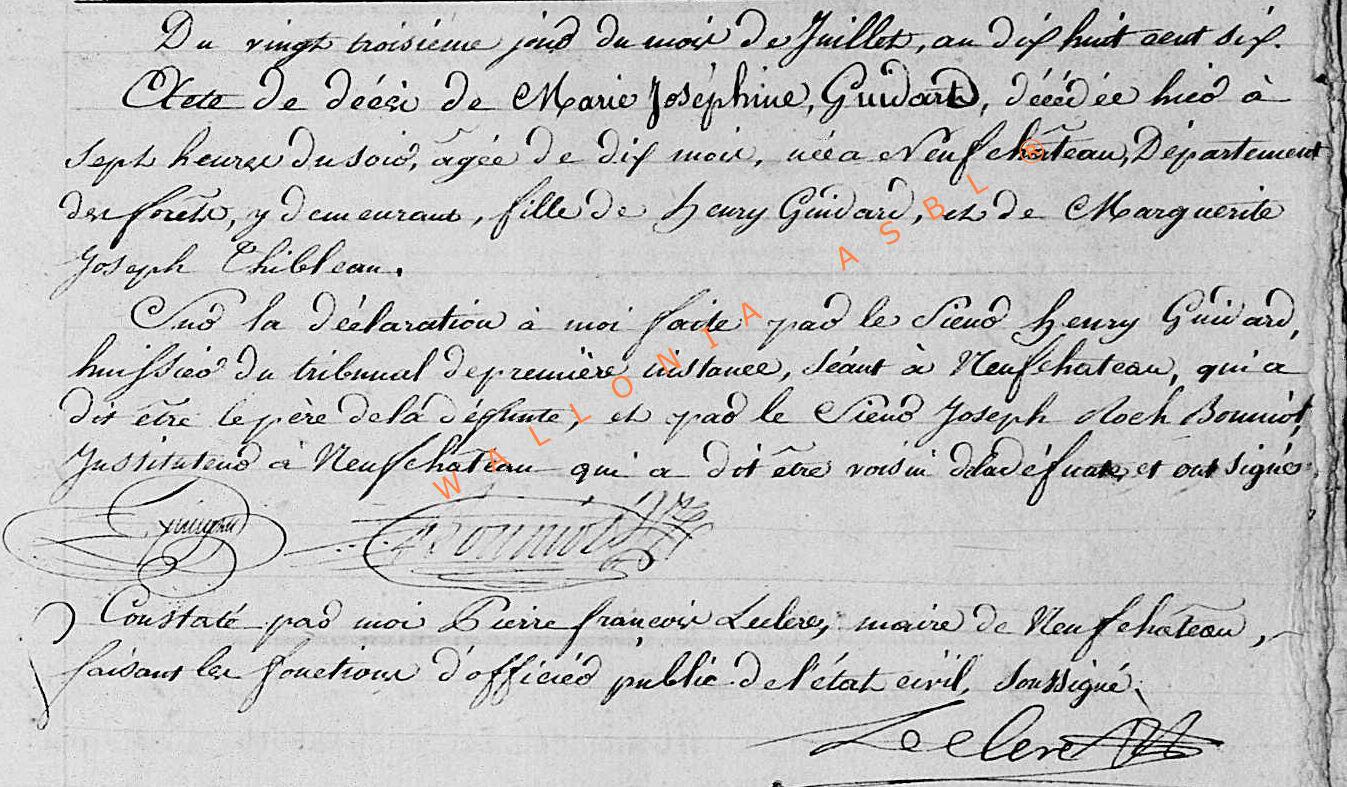 Du vingt troisième jour du mois de Juillet, an dix huit cent six.
Acte de décès de Marie Joséphine, Guidart, décédée hier à
sept heures du soir, âgée de dix mois, née a Neufchâteau, Département
des forêts, y demeurant, fille de henry Guidard, et de Marguerite
Joseph Thibleau.
Sur la déclaration à moi faite par le Sieur henry Guidard,
huissier du tribunal de première instance, séant à Neufchateau, qui a
dit être le père de la défunte, et par le Sieur Joseph Roch Bonniot,
Instituteur à Neufchâteau qui a dit être voisin de la défunte, et ont signés.
Bonniot
Constaté par moi Pierre françois Leclerc, maire de Neufchâteau,
faisant les fonctions d'officier public de l'état civil, soussigné.
Leclerc
WALLONIA ASBL ®